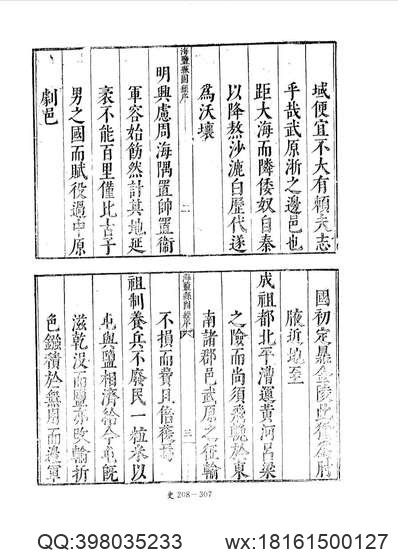 域便宜不大有賴夫志
乎哉武原浙之邊邑也
距大海而隣倭奴自秦
以降熬沙漉白歷代遂
為沃壤
海鹽縣圖經序
二
明興慮周海隅置帥置衛
軍容始飭然計其地延
袤不能百里僅比古子
男之國而賦役過中原
劇邑
國初定鼎金陵此猶為肘
腋近地至
成祖都北平漕運黃河呂梁
之險而尚須飛輓於東
南諸郡邑武原之征輸
海鹽縣圖經序
三
不損而費且倍蓰焉
祖制養兵不廢民一粒米以
屯與鹽相濟給今屯旣
滋乾沒而鹽亦改輸折
色鏹積於無用而邊軍
史 208-307
QQ:398035233
wx:18161500127